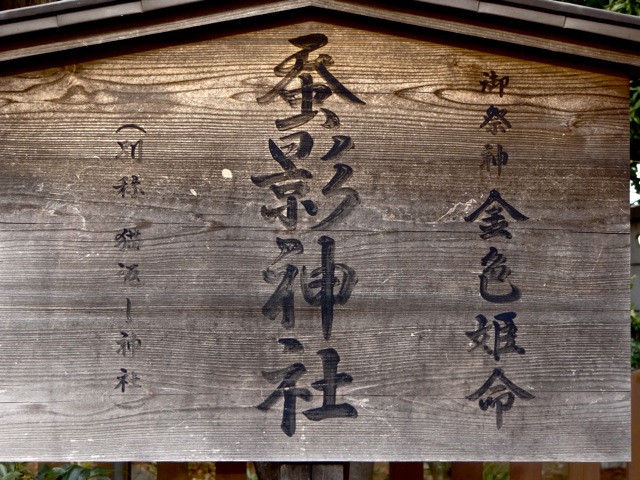 御祭神 金色姫命
蚕影神社
（別称 猫返し神社）